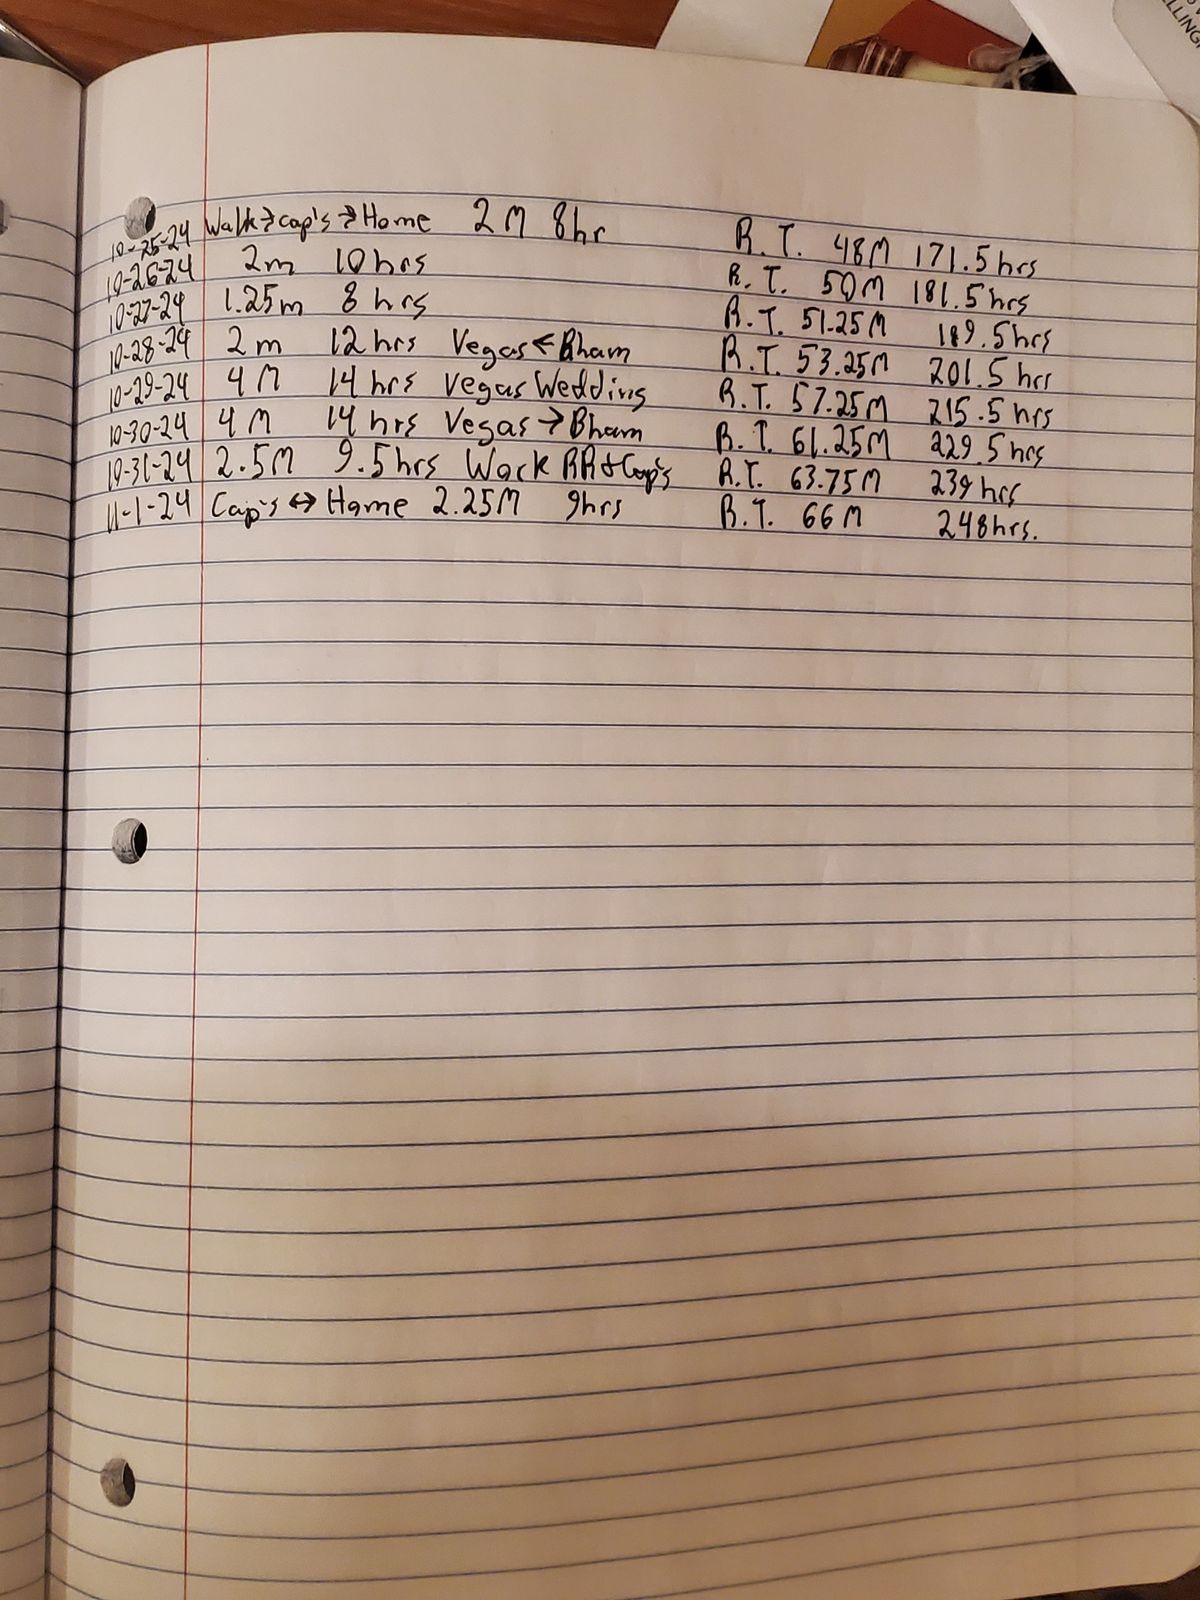 LLING
10-25-24 Walk→cap's→Home 2M 8hr R.T. 48M 171.5hrs
10-26-24 2m 10hrs R.T. 50M 181.5hrs
10-27-24 1.25m 8hrs R.T. 51.25M 189.5hrs
10-28-24 2m 12hrs Vegas←Bham R.T. 53.25M 201.5hrs
10-29-24 4M 14hrs Vegas Wedding R.T. 57.25M 215.5hrs
10-30-24 4M 14hrs Vegas→Bham R.T. 61.25M 229.5hrs
10-31-24 2.5M 9.5hrs Work RR+Cap's R.T. 63.75M 239hrs
11-1-24 Cap's↔Home 2.25M 9hrs R.T. 66M 248hrs.